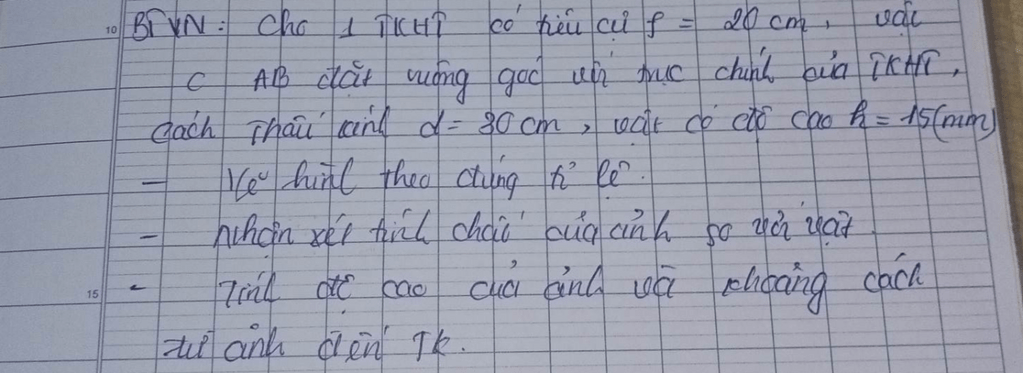 10 BTVN: Cho 1 TKHT có tiêu cự f = 20 cm, vật
C AB đặt vuông góc với trục chính của TKHT,
cách thấu kính d = 30 cm, vật có độ cao h = 15(mm)
- Vẽ hình theo đúng tỉ lệ.
- nhận xét tính chất của ảnh so với vật
15 - Tính độ cao của ảnh và khoảng cách
từ ảnh đến TK.